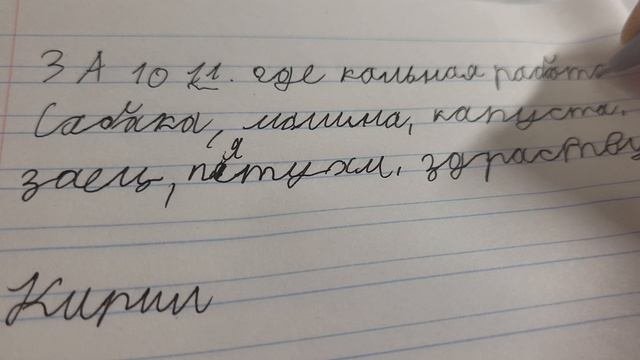 З А 10 11. где кальная работа
Сабака, молина, капуста.
заец, пятухм. здраству
Кирил